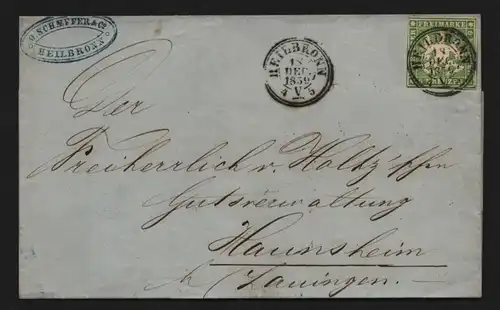 G. SCHÆFFER & Cº
HEILBRONN
HEILBRONN
18
DEC.
1859
4 V 5
FREIMARKE
HEILBRONN
18
DEC.
KREUZER
Der
Freiherrlich v. Holtz'schen
Gutsverwaltung
Haunsheim
Lauingen.